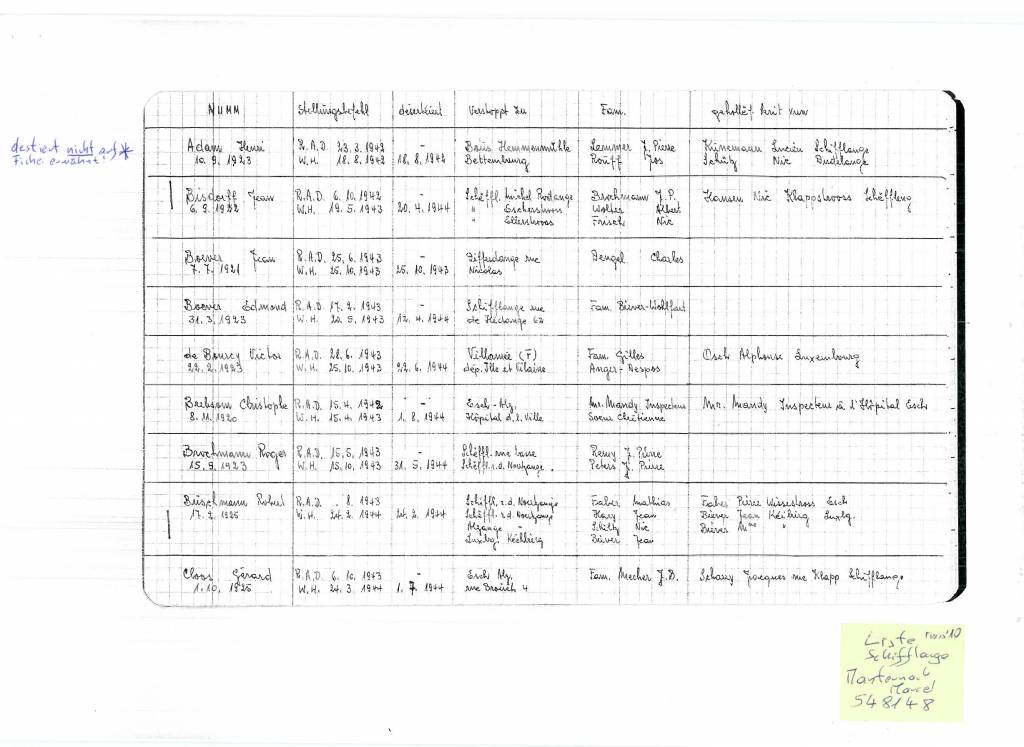 NUMM Stellungsbefehl déserteiert Verstoppt zu Fam. gehollëf krit vun
destiert nicht auf *
Fiche erwähnt!
Adam Henri R.A.D. 23.3.1942 - Bois Hemmenmühle Lemmer J. Pierre Künemann Lucien Schifflange
10.9.1923 W.H. 18.8.1942 18.8.1942 Bettemburg Rouff Jos Schütz Nic Dudelange
Bisdorff Jean R.A.D. 6.10.1942 - Schëffl. Michel Rodange Brochmann J.P. Hansen Nic Klappstrooss Schëffleng
6.9.1922 W.H. 19.5.1943 20.4.1944 " Escherstrooss Wolter Albert
" Ellerstrooss Frisch Nic
Boever Jean R.A.D. 25.6.1943 - Differdange rue Dengel Charles
7.7.1921 W.H. 25.10.1943 25.10.1943 Nicolas
Boever Edmond R.A.D. 17.2.1943 - Schifflange rue Fam. Biever-Wohlfart
31.3.1923 W.H. 20.5.1943 12.4.1944 de Hédange 62
de Bourcy Victor R.A.D. 28.6.1943 - Villamée (F) Fam. Gilles Osch Alphonse Luxembourg
22.2.1923 W.H. 25.10.1943 22.6.1944 dép. Ille et Vilaine Anger-Despos
Brebsom Christophe R.A.D. 15.4.1942 - Esch-Alz. Mr. Mandy Inspecteur Mr. Mandy Inspecteur à l'Hôpital Esch
8.11.1920 W.H. 15.4.1943 1.8.1944 Hôpital d.l. Ville Soeur Chrétienne
Brochmann Roger R.A.D. 15.5.1943 - Schëffl. rue basse Remy J. Pierre
15.9.1923 W.H. 15.10.1943 31.5.1944 Schëffl. r.d. Noertzange. Peters J. Pierre
Buschmann Robert R.A.D. . 8.1943 - Schëffl. r.d. Noertzange Faber Mathias Faber Pierre Wissestrooss Esch
17.2.1925 W.H. 24.2.1944 24.2.1944 Schëffl. r.d. Noertzange Hary Jean Biever Jean Kéibierg Luxbg.
Alzange " Schiltz Nic Biever Mme "
Luxbg. Kéchbierg Biever Jean
Cloos Gérard R.A.D. 6.10.1943 - Esch Alz. Fam. Mecher J.B. Schauy Jacques rue Klapp Schifflange
1.10.1925 W.H. 24.3.1944 1.7.1944 rue Brouch 4
Liste
Schifflange
Marcel
548148